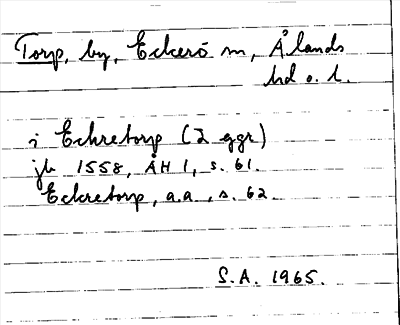 Torp, by, Eckerö sn, Ålands
hd o. l.
i Eckretorp (2 ggr)
jb 1558, ÅH 1, s. 61.
Eckretorp, a.a., s. 62.
S.A. 1965.